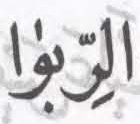 الرِّبوٰا